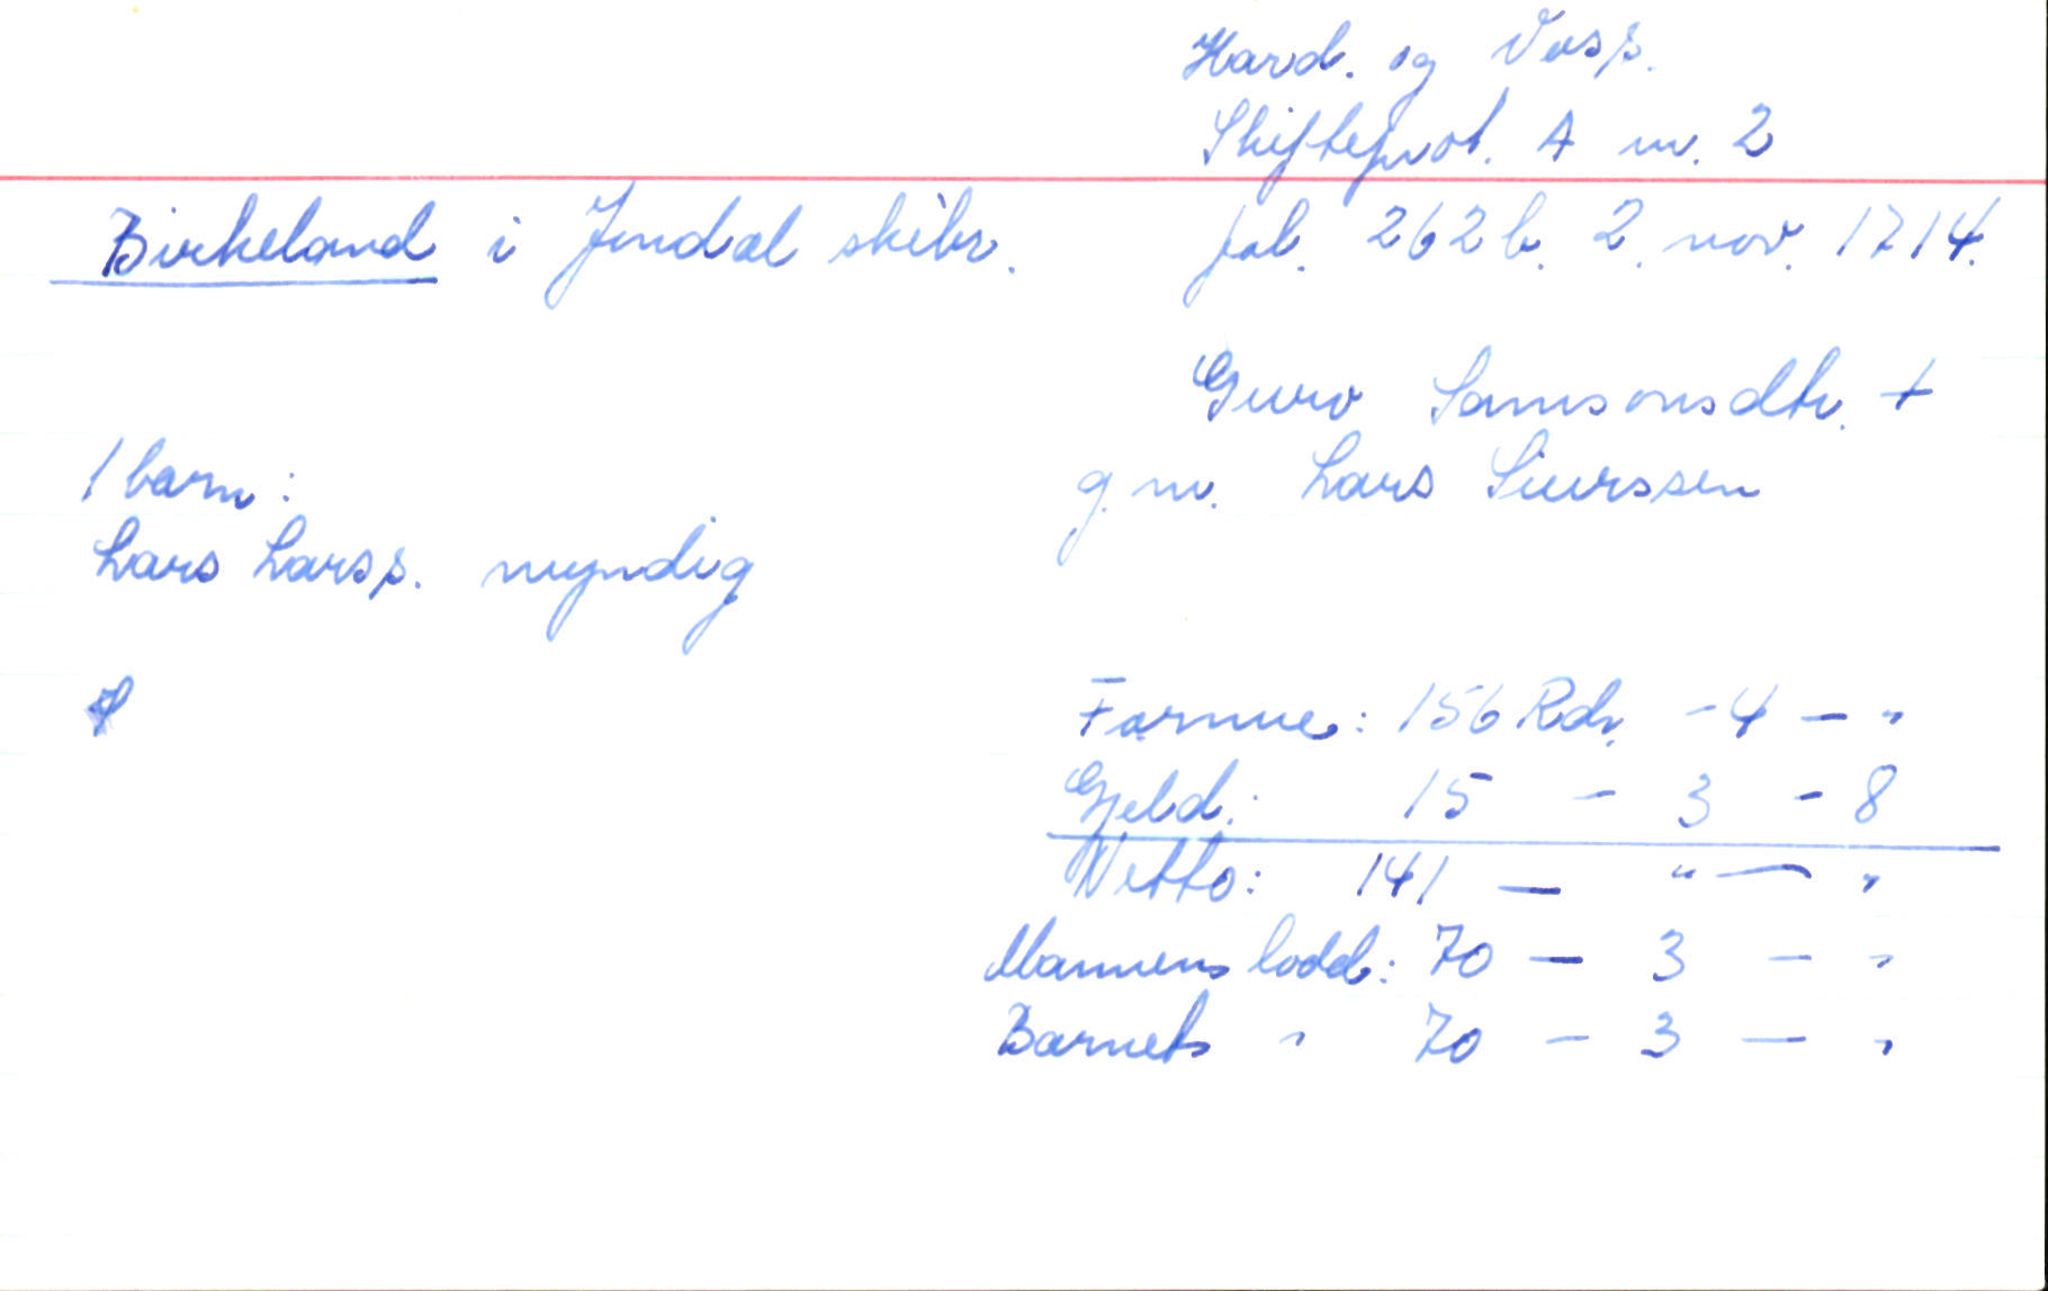 Hard. og Voss.
Skifteprot. A nr. 2
Birkeland i Jondal skibr. fol. 262 b. 2. nov. 1714.
Guro Samsonsdtr. +
g. m. Lars Siurssen
1 barn:
Lars Larss. myndig
Formue: 156 Rdr. - 4 - "
Gjeld: 15 - 3 - 8
Netto: 141 - " - "
Mannens lodd: 70 - 3 - "
Barnets " 70 - 3 - "